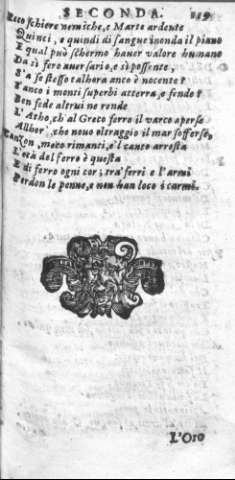 SECONDA. 119
Ecco schiere nemiche, e Marte ardente
Quinci, e quindi di sangue inonda il piano
E qual può schermo haver valore humano
Da sì fero auersario, e sì possente,
S'a se stesso talhora anco è nocente?
S'anco i monti superbi atterra, e fende?
Ben fede altrui ne rende
L'Atho, ch'al Greco ferro il varco aperse
Allhor', che nouo oltraggio il mar sofferse
Canzon, meco rimanti, e'l canto arresta
L'età del ferro è questa
E di ferro ogni cor; tra' ferri e l'armi
Perdon le penne, e non han loco i carmi.
L'Oro